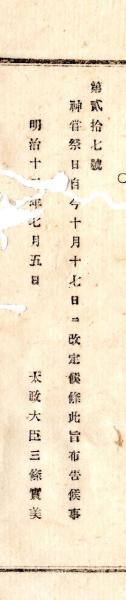 第貳拾七號
神嘗祭日自今十月十七日ニ改定候條此旨布告候事
明治十二年七月五日　太政大臣三條實美